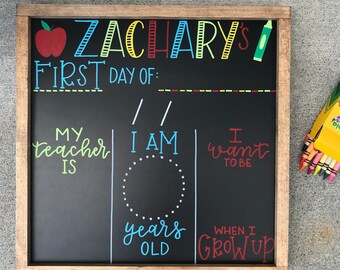 ZACHARY's
FIRST DAY OF:
/ /
MY
teacher
IS
I AM
years
OLD
I
want
TO BE
WHEN I
GROW UP